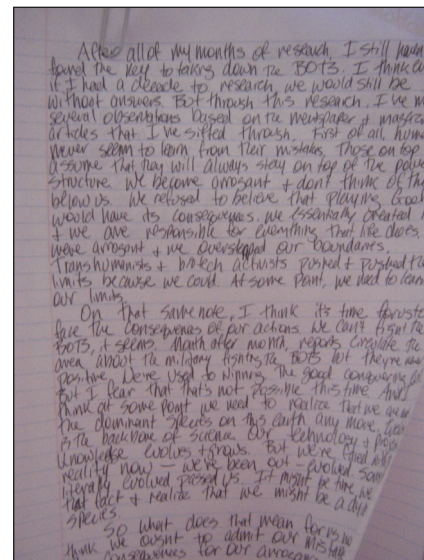 After all of my months of research, I still haven't
found the key to taking down the BOTS. I think
if I had a decade to research, we would still be
without answers. But through this research, I've
several observations based on the newspaper +
articles that I've sifted through. First of all,
never seem to learn from their mistakes. Those on top
assume that they will always stay on top of the
structure. We become arrogant + don't think of
below us. We refused to believe that playing God
would have its consequences. We essentially created
+ we are responsible for everything that life does.
were arrogant + we overstepped our boundaries.
Transhumanists + biotech activists pushed + pushed the
limits because we could. At some point, we need to learn
our limits.
On that same note, I think it's time for us to
face the consequences of our actions. We can't fight the
BOTS, it seems. Month after month, reports circulate the
area about the military fighting the BOTS but they're never
positive. We're used to winning. The good conquering
But I fear that that's not possible this time. And I
think at some point we need to realize that we are
the dominant species on this earth any more.
is the backbone of science. Our technology +
knowledge evolves + grows. But we're
reality now — we've been out-evolved.
literally evolved passed us. It might be time we
that fact + realize that we might be a
species.
So what does that mean for us
think we ought to admit our
consequences for our